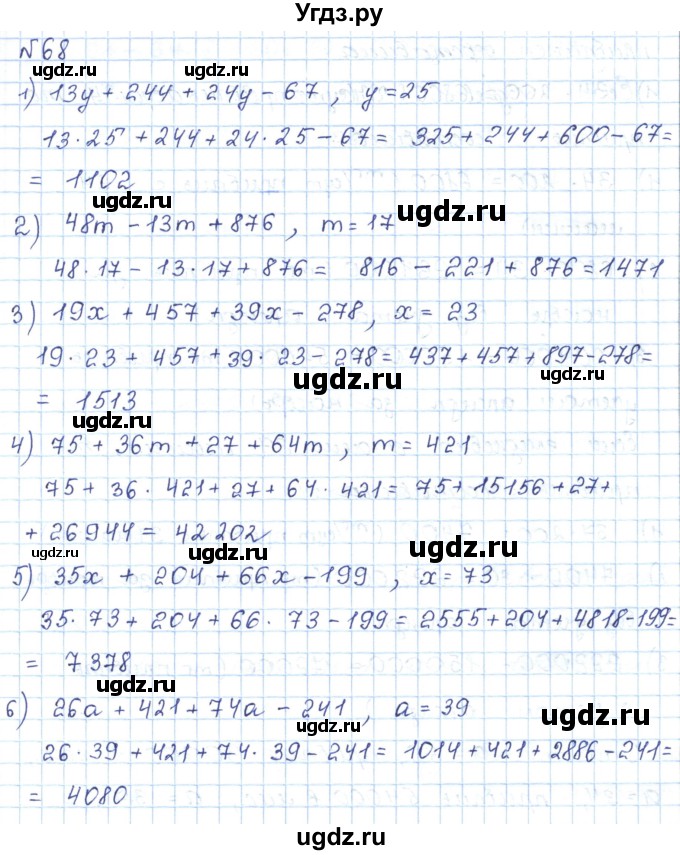 Угдз.ру
№68
ugdz.ru ugdz.ru
1) 13y + 244 + 24y - 67 , y = 25
13 · 25 + 244 + 24 · 25 - 67 = 325 + 244 + 600 - 67 =
= 1102
ugdz.ru
ugdz.ru
2) 48m - 13m + 876 , m = 17
48 · 17 - 13 · 17 + 876 = 816 - 221 + 876 = 1471
3) 19x + 457 + 39x - 278, x = 23
19 · 23 + 457 + 39 · 23 - 278 = 437 + 457 + 897 - 278 =
ugdz.ru ugdz.ru
= 1513
ugdz.ru
4) 75 + 36m + 27 + 64m , m = 421
75 + 36 · 421 + 27 + 64 · 421 = 75 + 15156 + 27 +
+ 26944 = 42202
ugdz.ru ugdz.ru ugdz.ru
5) 35x + 204 + 66x - 199 , x = 73
35 · 73 + 204 + 66 · 73 - 199 = 2555 + 204 + 4818 - 199 =
= 7378
ugdz.ru
6) 26a + 421 + 74a - 241 , a = 39
ugdz.ru ugdz.ru
26 · 39 + 421 + 74 · 39 - 241 = 1014 + 421 + 2886 - 241 =
= 4080
ugdz.ru